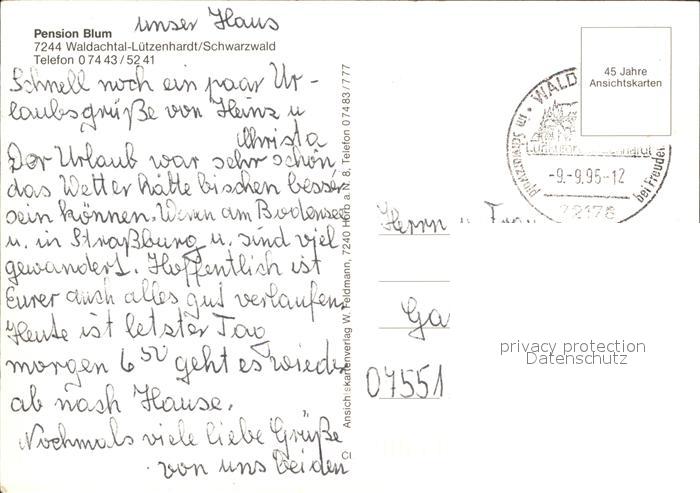 unser Haus
Pension Blum
7244 Waldachtal-Lützenhardt/Schwarzwald
Telefon 0 74 43 / 52 41
Schnell noch ein paar Ur-
laubsgrüße von Heinz u
Christa
Der Urlaub war sehr schön
das Wetter hätte bischen besser
sein können. Waren am Bodensee
u. in Straßburg u. sind viel
gewandert. Hoffentlich ist
Eurer auch alles gut verlaufen.
Heute ist letzter Tag
morgen 6 50 geht es wieder
ab nach Hause.
Nochmals viele liebe Grüße
von uns beiden
Ansichtskartenverlag W. Feldmann, 7240 Horb a. N. 8, Telefon 0 74 83 / 7 77
45 Jahre
Ansichtskarten
WALD
im Schwarzwald
Luftkurort
bei Freuden
-9.-9.95-12
72178
Herrn u Frau
Ga
07551
privacy protection
Datenschutz